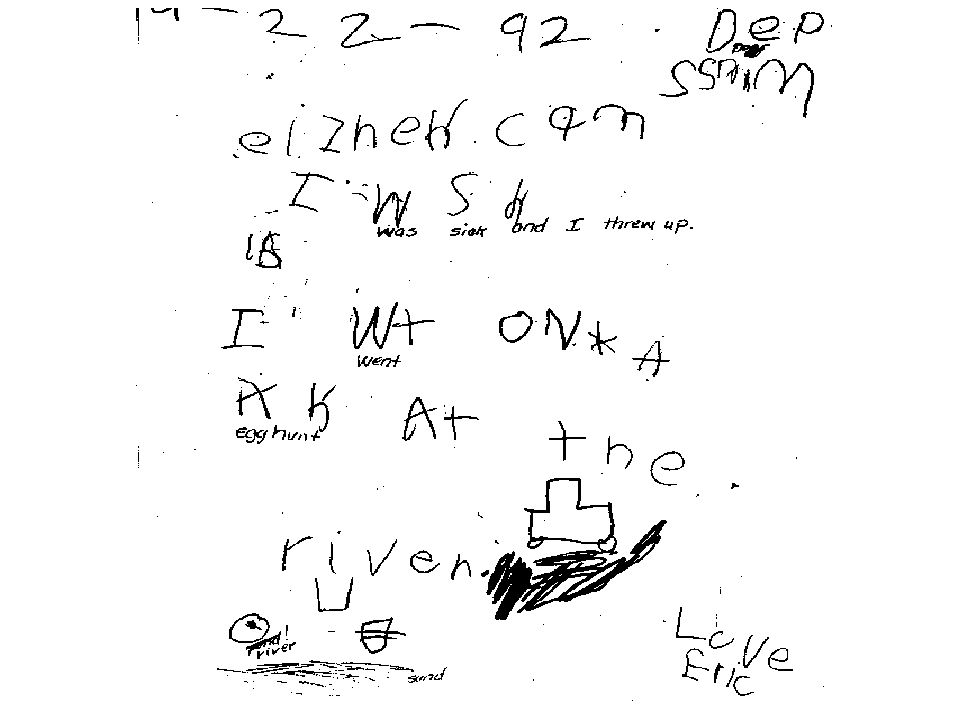 22-92 Dep
ssrim
eizneh.can
I W S k
was sick and I threw up.
I Wt ON A
went
A K At the
egg hunt
river
river
Love
Eric